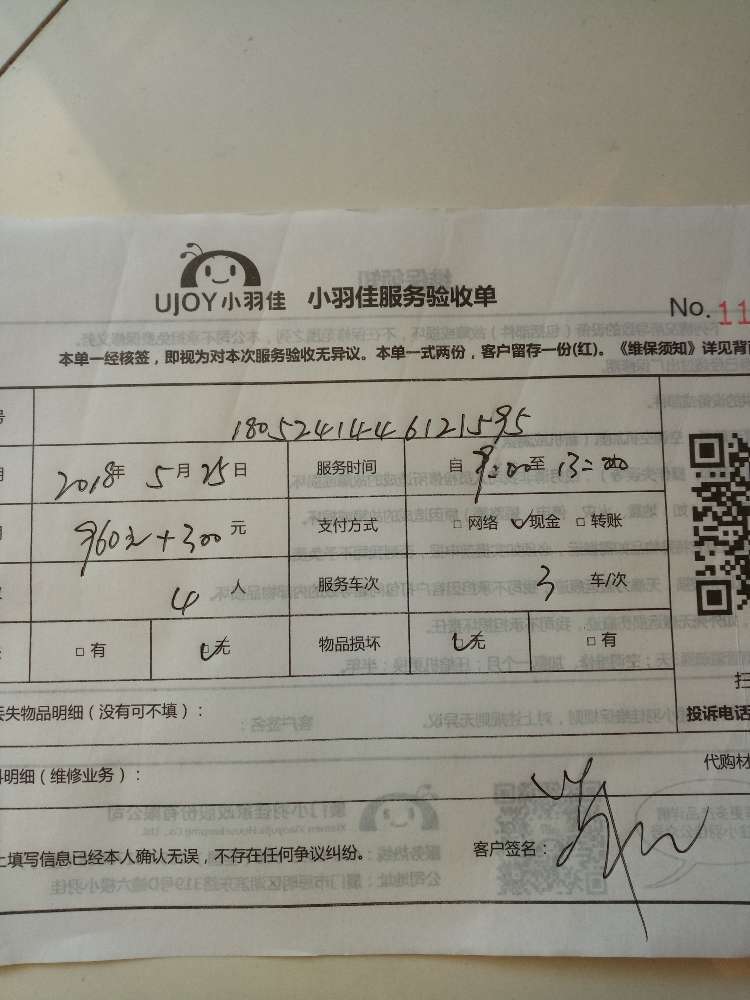 UJOY小羽佳 小羽佳服务验收单
No. 11
本单一经核签，即视为对本次服务验收无异议。本单一式两份，客户留存一份(红)。《维保须知》详见背
号 1805241446121595
期 2018年 5月25日 服务时间 自 9:00至 13:00
960元+300元 支付方式 □ 网络 ✓现金 □ 转账
4 人 服务车次 3 车/次
□ 有 ✓无 物品损坏 ✓无 □ 有
扫
丢失物品明细（没有可不填）： 投诉电话
料明细（维修业务）： 代购材
上填写信息已经本人确认无误，不存在任何争议纠纷。 客户签名：